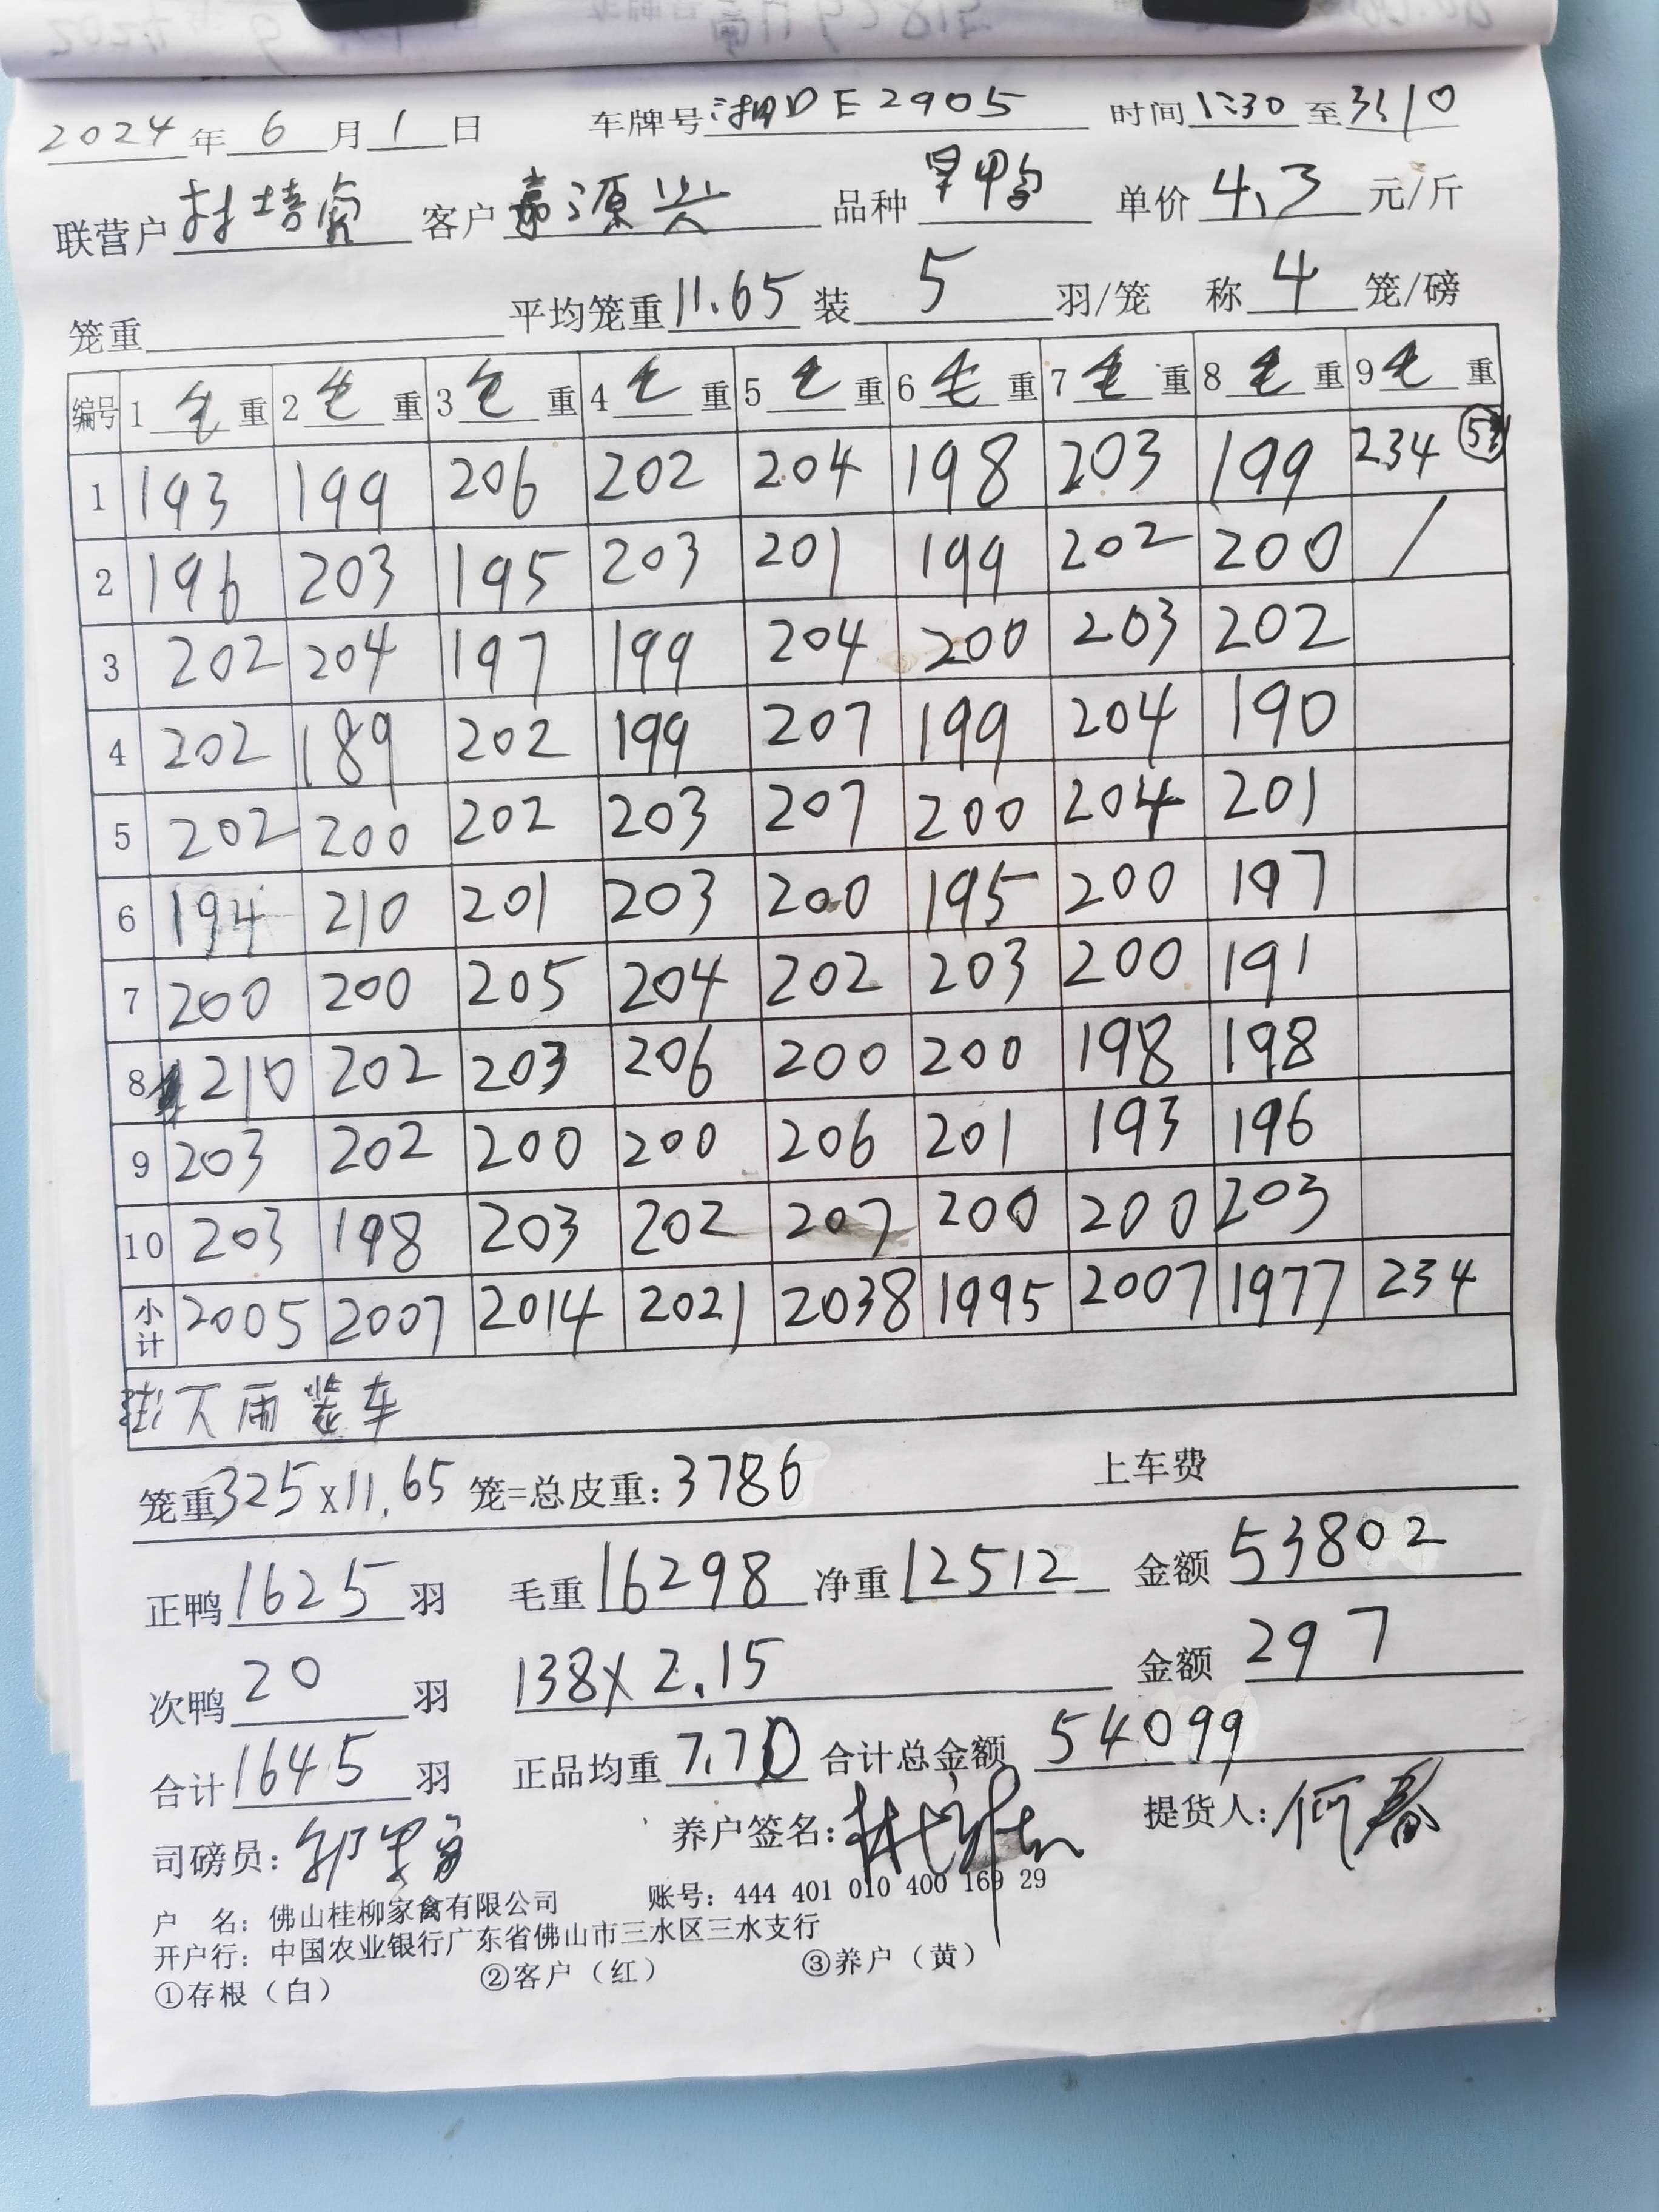 2024年6月1日 车牌号湘DE2905 时间1:30至3:10
联营户林培 客户嘉源兴 品种旱鸭 单价4.3元/斤
笼重 平均笼重11.65装5羽/笼 称4笼/磅
编号 1毛重 2毛重 3毛重 4毛重 5毛重 6毛重 7毛重 8毛重 9毛重
1 193 199 206 202 204 198 203 199 234
2 196 203 195 203 201 199 202 200 /
3 202 204 197 199 204 200 203 202
4 202 189 202 199 207 199 204 190
5 202 200 202 203 207 200 204 201
6 194 210 201 203 200 195 200 197
7 200 200 205 204 202 203 200 191
8 210 202 203 206 200 200 198 198
9 203 202 200 200 206 201 193 196
10 203 198 203 202 207 200 200 203
小计 2005 2007 2014 2021 2038 1995 2007 1977 234
下雨装车
笼重325x11.65笼=总皮重:3786 上车费
正鸭1625羽 毛重16298净重12512 金额53802
次鸭20羽 138x2.15 金额297
合计1645羽 正品均重7.70合计总金额54099
司磅员: 养户签名: 提货人:何春
户 名:佛山桂柳家禽有限公司 账号:444 401 010 400 169 29
开户行:中国农业银行广东省佛山市三水区三水支行
①存根(白) ②客户(红) ③养户(黄)